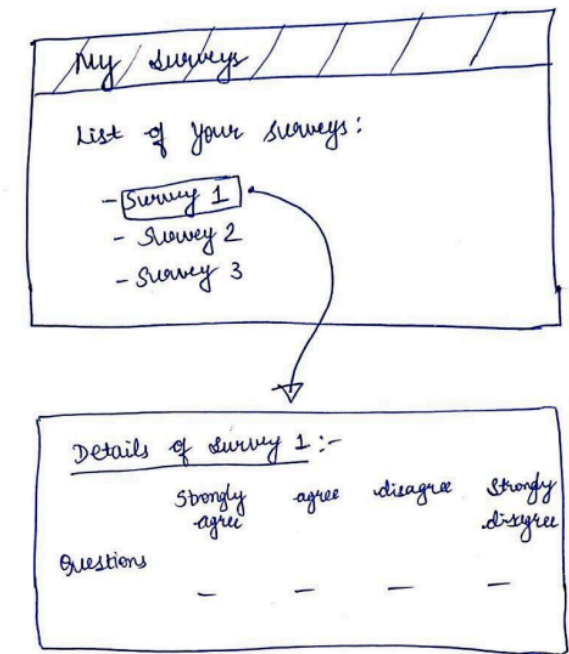 My surveys
List of your surveys:
- Survey 1
- Survey 2
- Survey 3
Details of survey 1 :-
Strongly agree agree disagree Strongly disagree
Questions
— — — —